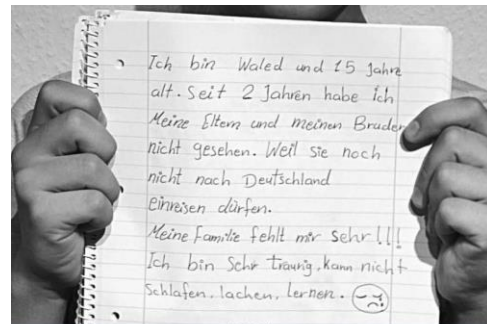 Ich bin Waled und 15 Jahre
alt. Seit 2 Jahren habe ich
Meine Eltern und meinen Bruder
nicht gesehen. Weil sie noch
nicht nach Deutschland
einreisen dürfen.
Meine Familie fehlt mir sehr!!!
Ich bin Sehr traurig, kann nicht
schlafen, lachen, lernen.